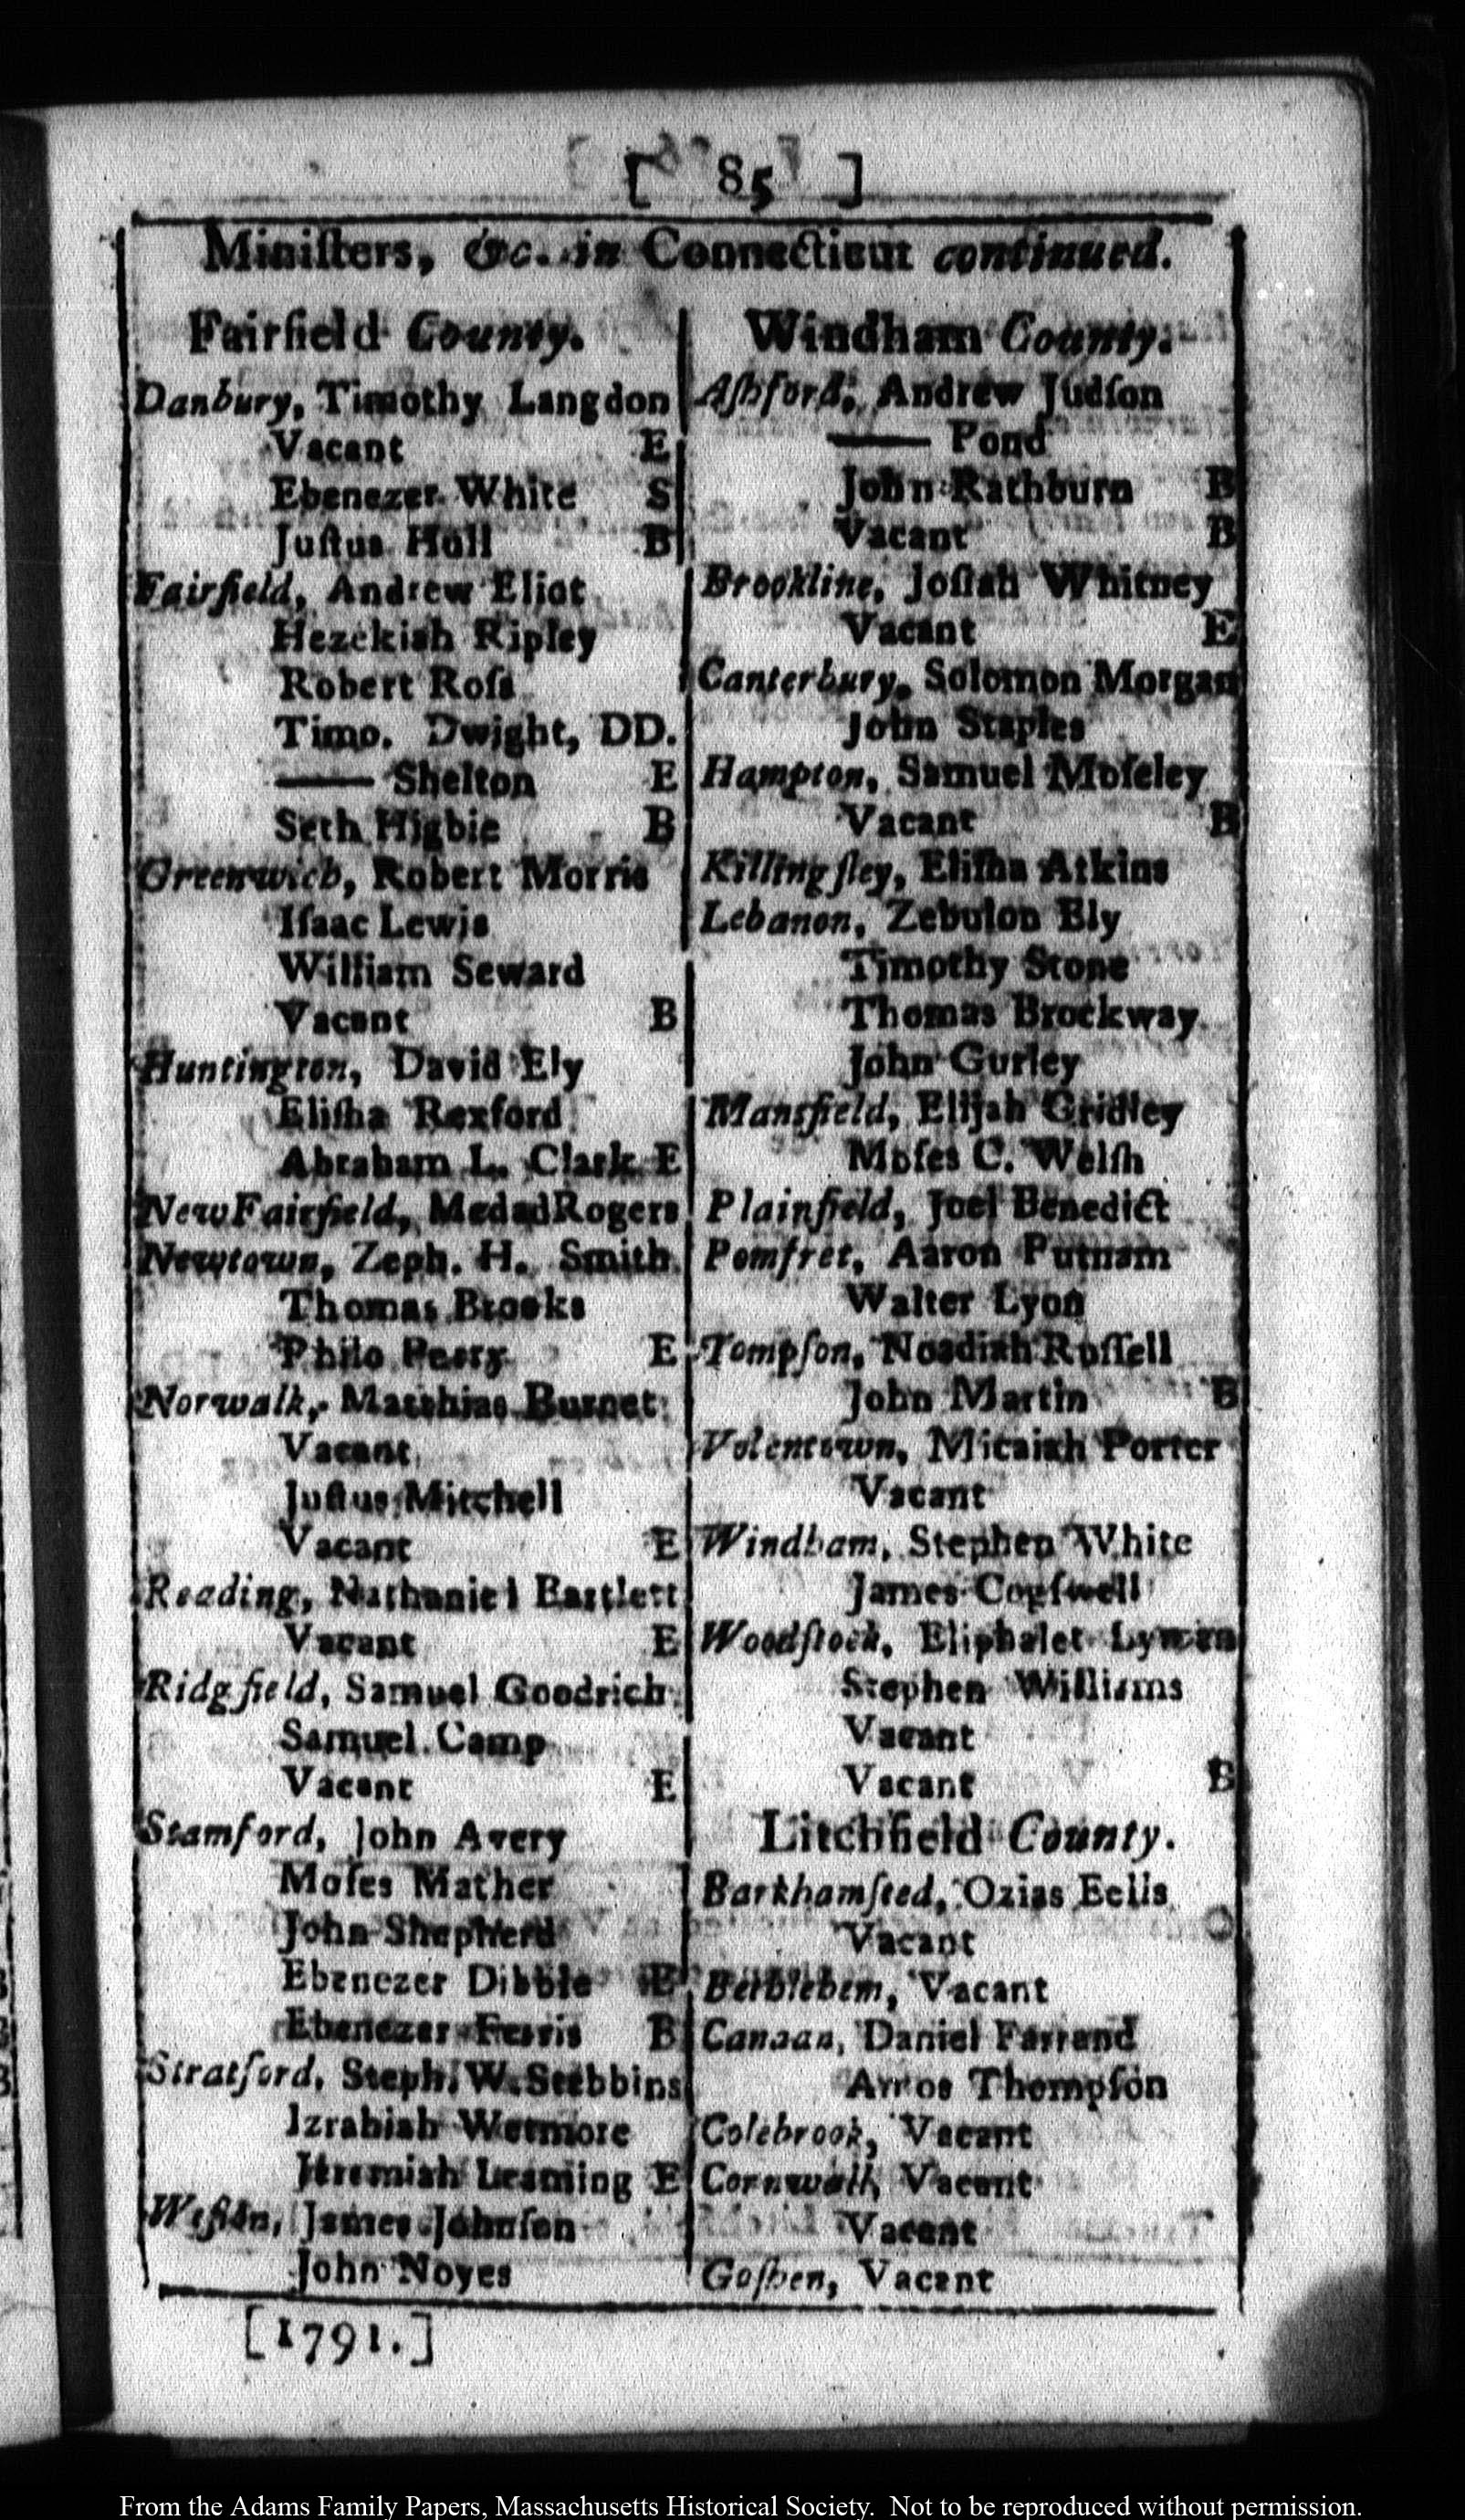 [ 85 ]
Miniſters, &c. in Connecticut continued.
Fairfield County.
Danbury, Timothy Langdon
Vacant E
Ebenezer White S
Juſtus Hull B
Fairfield, Andrew Eliot
Hezekiah Ripley
Robert Roſs
Timo. Dwight, DD.
—— Shelton E
Seth Higbie B
Greenwich, Robert Morris
Iſaac Lewis
William Seward
Vacant B
Huntington, David Ely
Eliſha Rexford
Abraham L. Clark E
New Fairfield, Medad Rogers
Newtown, Zeph. H. Smith
Thomas Brooks
Philo Perry E
Norwalk, Matthias Burnet
Vacant
Juſtus Mitchell
Vacant E
Reading, Nathaniel Bartlett
Vacant E
Ridgfield, Samuel Goodrich
Samuel Camp
Vacant E
Stamford, John Avery
Moſes Mather
John Shepherd
Ebenezer Dibble E
Ebenezer Ferris B
Stratford, Steph. W. Stebbins
Izrahiah Wetmore
Jeremiah Leaming E
Weſton, James Johnſon
John Noyes
Windham County.
Aſhford, Andrew Judſon
—— Pond
John Rathburn B
Vacant B
Brookline, Joſiah Whitney
Vacant E
Canterbury, Solomon Morgan
John Staples
Hampton, Samuel Moſeley
Vacant B
Killingſley, Eliſha Atkins
Lebanon, Zebulon Ely
Timothy Stone
Thomas Brockway
John Gurley
Mansfield, Elijah Gridley
Moſes C. Welſh
Plainfield, Joel Benedict
Pomfret, Aaron Putnam
Walter Lyon
Tompſon, Noadiah Ruſſell
John Martin B
Volentown, Micaiah Porter
Vacant
Windham, Stephen White
James Cogſwell
Woodſtock, Eliphalet Lyman
Stephen Williams
Vacant
Vacant B
Litchfield County.
Barkhamſted, Ozias Eells
Vacant
Bethlehem, Vacant
Canaan, Daniel Farrand
Amos Thompſon
Colebrook, Vacant
Cornwall, Vacant
Vacant
Goſhen, Vacant
[1791.]
From the Adams Family Papers, Massachusetts Historical Society. Not to be reproduced without permission.